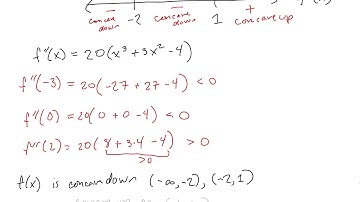 − − +
concave down -2 concave down 1 concave up
f''(x) = 20(x³ + 3x² - 4)
f''(-3) = 20(-27 + 27 - 4) < 0
f''(0) = 20(0 + 0 - 4) < 0
f''(2) = 20(8 + 3·4 - 4) > 0
>0
f(x) is concave down (-∞, -2), (-2, 1)